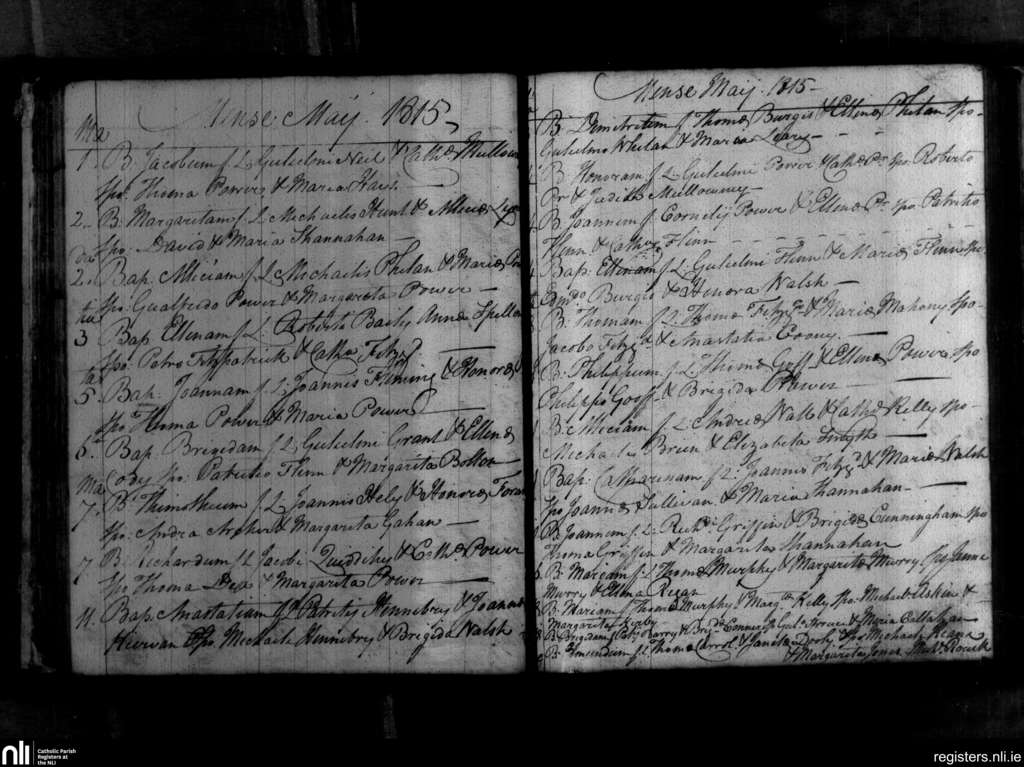 Mense Maij 1815
1. B. Jacobum f. L. Gulielmi Neil & Cath.
Spo. Thoma Power & Maria Hais
2. B. Margaritam f. L. Michaelis Hunt & Alliciæ
Spo. David & Maria Shannahan
2. Bap. Alliciam f. L. Michaelis Phelan & Mariæ
Spo. Gualfrido Power & Margarita Power
3 Bap. Ellenam f. L. Roberti Baily Annæ
Spo. Petro Fitzpatrick & Catha Fitzgd.
5. Bap. Joannam f. L. Joannis Fleming & Honoræ
Spo. Thoma Power & Maria Power
6. Bap. Brigidam f. L. Gulielmi Grant & Ellenæ
Cody Spo. Patritio Flinn & Margarita Bolton
7. B. Thimotheum f. L. Joannis Hely & Honoræ
Spo. Andrea Archer & Margarita Gahan
7 B. Richardum f. L. Jacobi Quiddihy & Cathæ Power
Spo. Thoma Shea & Margarita Power
11. Bap. Anastatiam f. L. Patritij Hennebry & Joannæ
Kirivan Spo. Michaele Hennebry & Brigida Walsh
Mense Maij 1815
B. Demitrium f. Thomæ Burgis & Ellenæ Phelan Spo.
Gulielmo Whelan & Maria Leary
B. Honoram f. L. Gulielmi Power & Cathæ Pr. Spo. Roberto
Pr. & Judith Mullowney
B. Joannem f. Cornelij Power & Ellenæ Pr. Spo. Patritio
Flinn & Flinn
Bap. Ellenam f. L. Gulielmi Flinn & Mariæ Flinn Spo.
Edmdo Burgis & Honora Walsh
B. Thomam f. L. Thomæ Fitzgd. & Mariæ Mahony Spo.
Jacobo Fitzgd. & Anastatia
B. Philippum f. L. Thomæ Goff & Ellenæ Power Spo.
Philippo Goof & Brigida Power
B. Alliciam f. L. Andreæ Nall & Cathæ Kelly Spo.
Michaele Breen & Elizabeta
Bap. Catharinam f. L. Joannis Fitzgd. & Mariæ Walsh
Spo. Joanne Sullivan & Maria Shannahan
B. Joannem f. L. Richdi Griffin & Brigidæ Cunningham Spo.
Thoma Griffin & Margarita Shannahan
B. Mariam f. L. Thomæ Murphy & Margaritæ Murry Spo. Jacobo
Murry & Ellena Regan
B. Mariam f. Thomæ Murphy & Margth Kelly Spo. Michaele &
Margarita Kirby
B. Brigidam f. Patrij Barry & Brigdæ Connery & Maria Callaghan
B. Edmundum f. L. Thomæ Carrol & Joannæ Spo. Michaele Keane
& Margarita Jones
nli
Catholic Parish
Registers at
the NLI
registers.nli.ie